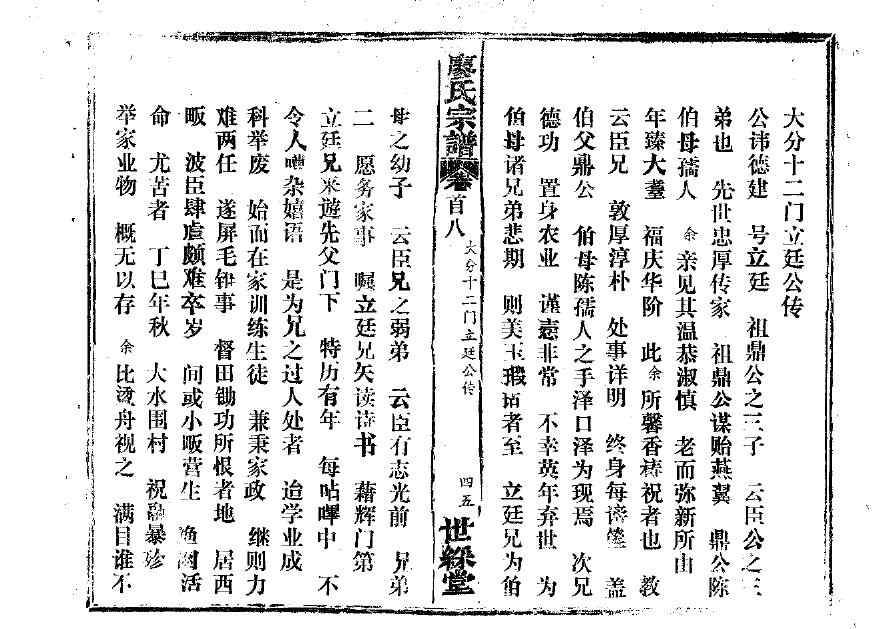 大分十二门立廷公传
公讳德建 号立廷 祖鼎公之三子 云臣公之三
弟也 先世忠厚传家 祖鼎公谋贻燕翼 鼎公陈
伯母孺人 余亲见其温恭淑慎 老而弥新所由
年臻大耋 福庆华阶 此余所馨香祷祝者也 教
云臣兄 敦厚淳朴 处事详明 终身每 盖
伯父鼎公 伯母陈孺人之手泽口泽为现焉 次兄
德功 置身农业 谨悫非常 不幸英年弃世 为
伯母诸兄弟悲期 则美玉瑕 者至 立廷兄为伯
廖氏宗譜 卷首八 大分十二门立廷公传 四五 世綵堂
母之幼子 云臣兄之弱弟 云臣有志光前 兄弟
二 愿务家事 嘱立廷兄矢读诗书 藉辉门第
立廷兄来遊先父门下 特历有年 每呫嗶中 不
令人嘈杂嬉语 是为兄之过人处者 迨学业成
科举废 始而在家训练生徒 兼秉家政 继则力
难两任 遂屏毛锥事 督田锄功所恨者地 居西
畈 波臣肆虐颇难卒岁 间或小畈营生 渔 活
命 尤苦者 丁巳年秋 大水围村 祝融暴殄
举家业物 概无以存 余比 舟视之 满目谁不